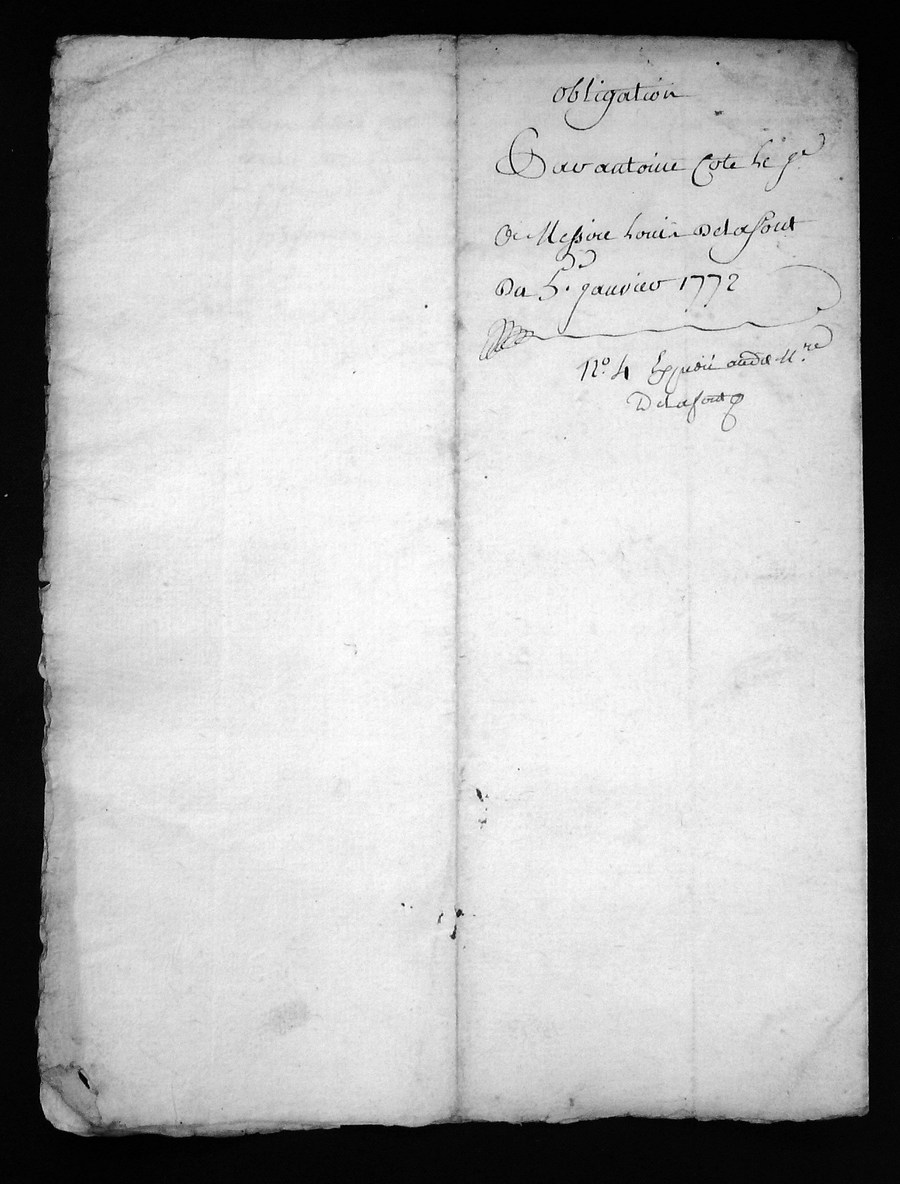 obligation
Par antoine Cote le je
A Messire Louis Delafont
Du 5e janvier 1772
No. 4 Expedié audt Mre
Delafont